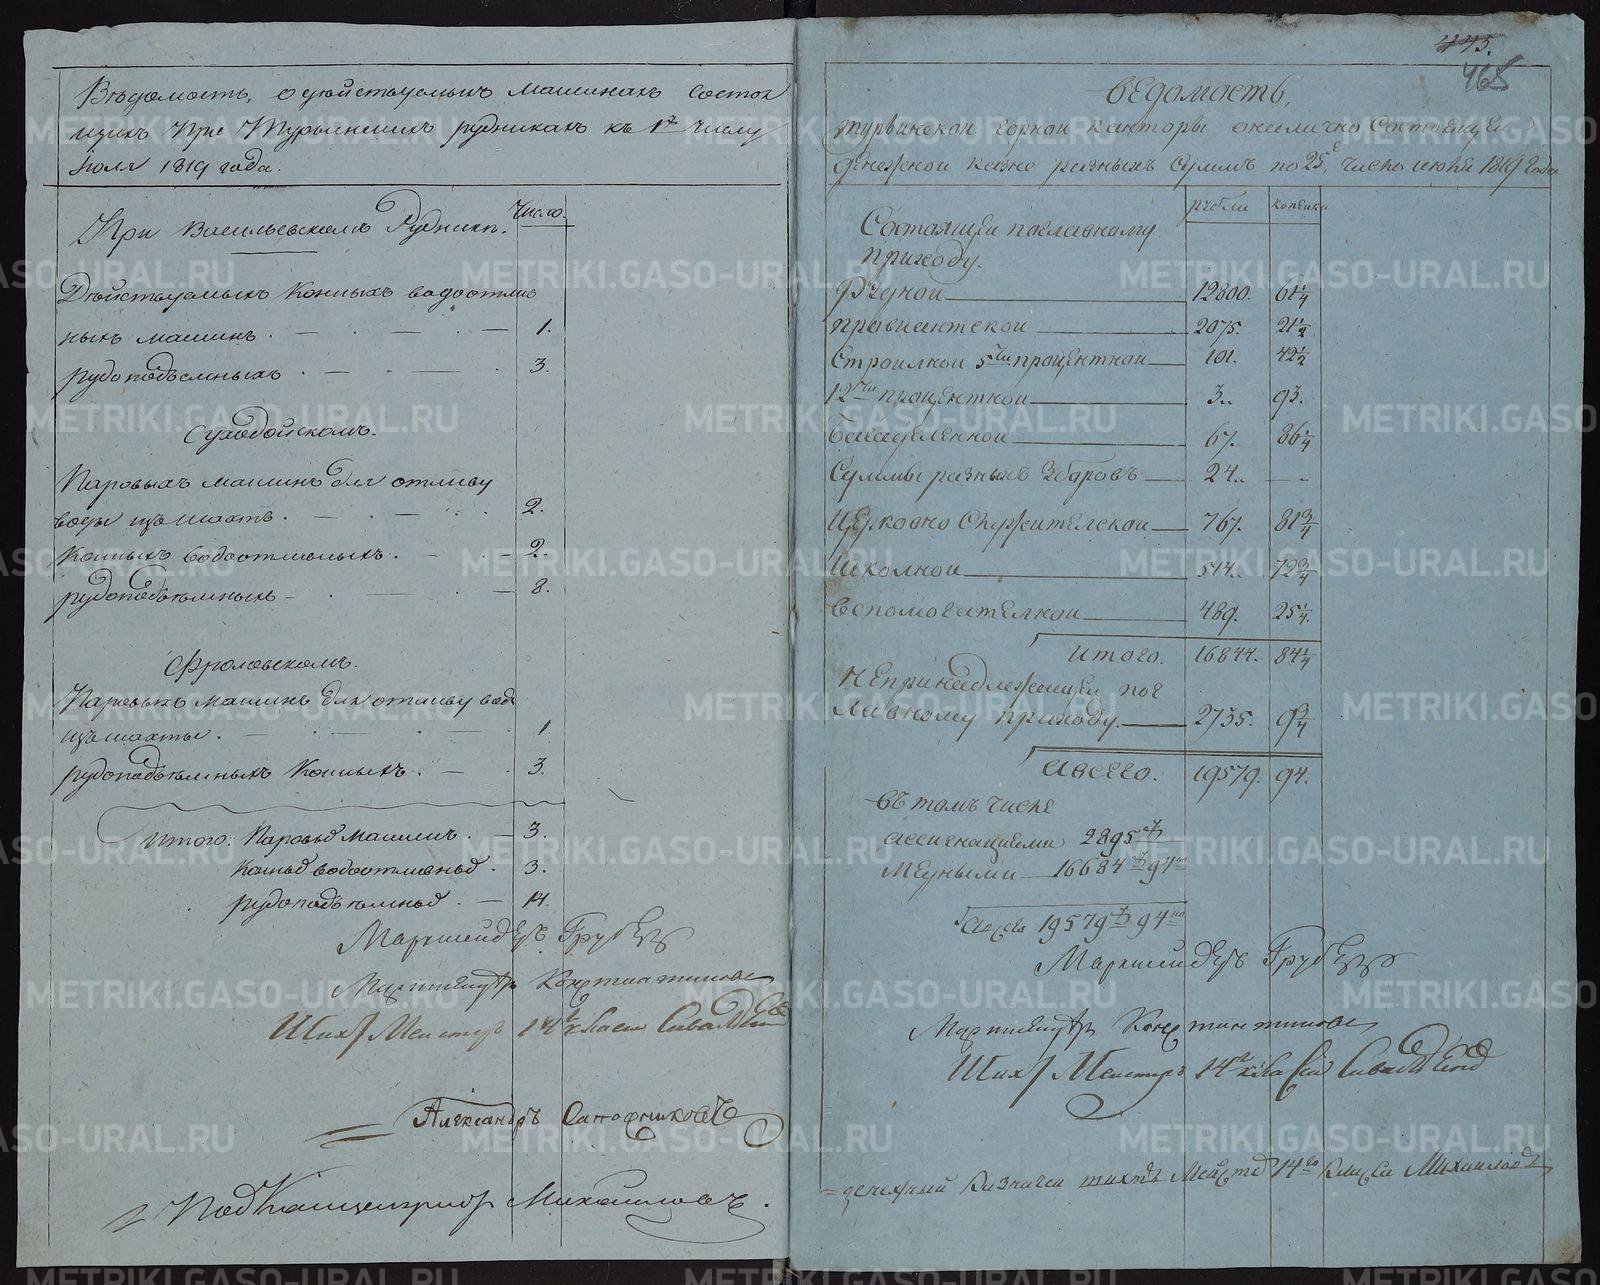 Вѣдомость, о дѣйствуемыхъ машинахъ состоя
щихъ При Турьинскихъ рудникахъ къ 1му Числу
Іюля 1819 года.
Число.
При Васильевскомъ Рудникѣ.
Дѣйствуемыхъ конныхъ водоотлив
ныхъ машинъ. 1.
рудоподъемныхъ. 3.
Суходойскомъ.
Паровыхъ машинъ для отливу
воды изъ шахтъ. 2.
Конныхъ водоотливныхъ. 2.
рудоподъемныхъ 8.
Фроловскомъ.
Паровыхъ машинъ для отливу воды
изъ шахты. 1
рудоподъемныхъ Конныхъ. 3.
Итого: Паровыхъ машинъ. 3.
Конныхъ водоотливныхъ. 3.
рудоподъемныхъ. 14.
Маркшейдеръ Грубе
Константиновъ
Шихтмейстеръ 14го класса
Александръ Сапожниковъ
Подканцеляристъ Михайловъ.
445.
465
Ведомость,
турьинской горной канторы о наличной состоящей
денежной казне разныхъ суммъ по 25е число июня 1819 года
рубли копейки
Состоящей по главному
приходу.
Рудной 12800. 61 1/4
провиантской 2075. 21 1/2
Строилной 5ти процентной 101. 42 1/2
12ти процентной 3.. 93.
Богадѣленной 67. 86 1/4
Суммы разныхъ зборовъ 24..
Церковно служителской 767. 81 3/4
Школной 514. 72 3/4
вспомогателной 489. 25 1/4
Итого. 16844. 84 1/4
Непринадлежащей по г
лавному приходу. 2735. 9 3/4
А всего. 19579. 94.
въ томъ числе
ассигнациями 2895 р
медными 16684 р 94 ко
19579 р 94 ко
Маркшейдеръ Грубе
Константиновъ
Шихтмейстеръ 14го класса
денежный казначей шихтъ Мейстеръ 14го класса Михайловъ
METRIKI.GASO-URAL.RU